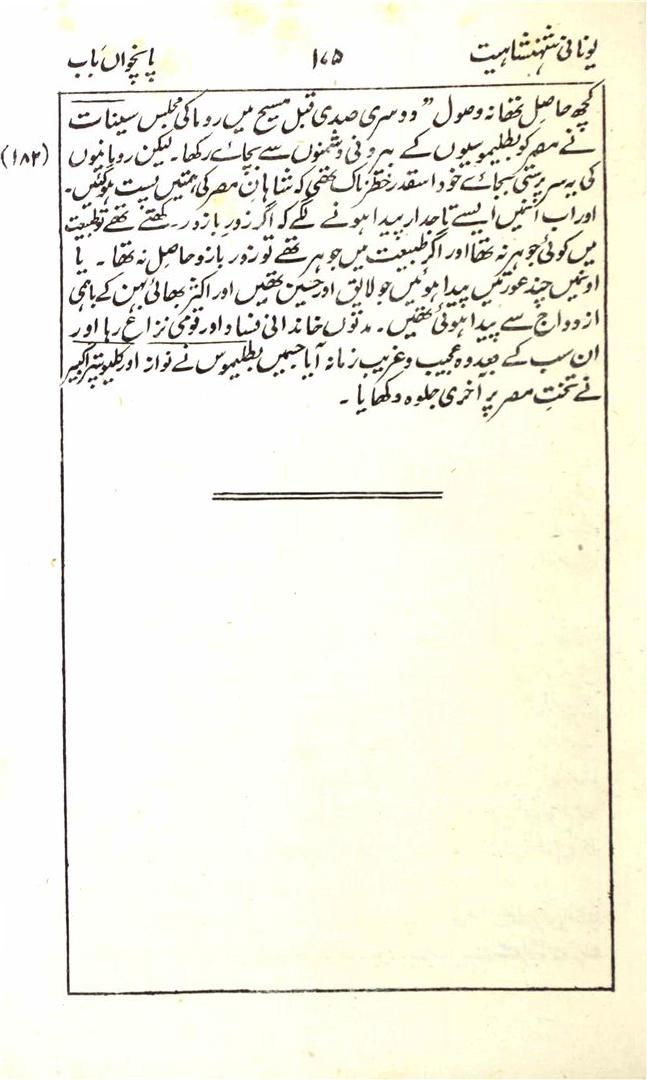 یونانی شہنشاہیت ۱۷۵ پانچواں باب
کچھ حاصل تھا نہ وصول" دوسری صدی قبل مسیح میں روما کی مجلس سینات
نے مصر کو بطلیموسیوں کے بیرونی دشمنوں سے بچائے رکھا۔ لیکن رومانیوں (۱۸۲)
کی یہ سرپرستی بجائے خود اسقدر خطرناک تھی کہ شاہان مصر کی ہمتیں پست ہوگئیں۔
اور اب اُنمیں ایسے تاجدار پیدا ہونے لگے کہ اگر زور بازو رکھتے تھے تو طبیعت
میں کوئی جوہر نہ تھا اور اگر طبیعت میں جوہر تھے تو زور بازو حاصل نہ تھا۔ یا
اونمیں چند عورتیں پیدا ہوئیں جو لایق اور حسین تھیں اور اکثر بھائی بہن کے باہمی
ازدواج سے پیدا ہوئی تھیں۔ مدتوں خاندانی فساد اور قومی نزاع رہا اور
ان سب کے بعد وہ عجیب و غریب زمانہ آیا جسمیں بطلیموس نے نواز اور کلیوپیٹرا کبیر
نے تخت مصر پر آخری جلوہ دکھایا۔